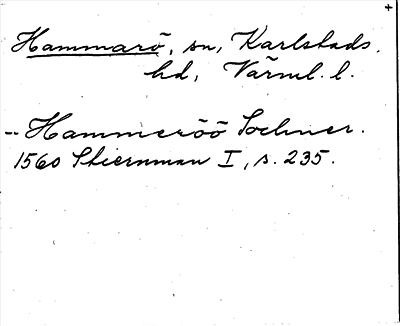 Hammarö, sn, Karlstads.
hd, Värml. l.
-- Hammeröö Sochner.
1560 Stiernman I, s. 235.